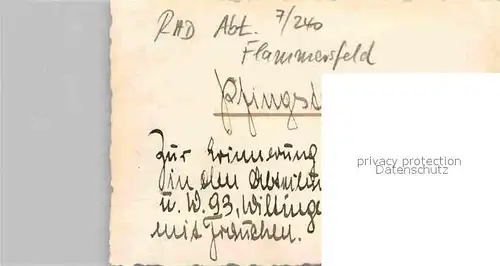 RAD Abt. 7/240
Flammersfeld
Pfingst
Zur Erinnerung
in den Abteilun
u. W. 93, Wiltinge
mit Frauchen.
privacy protection
Datenschutz